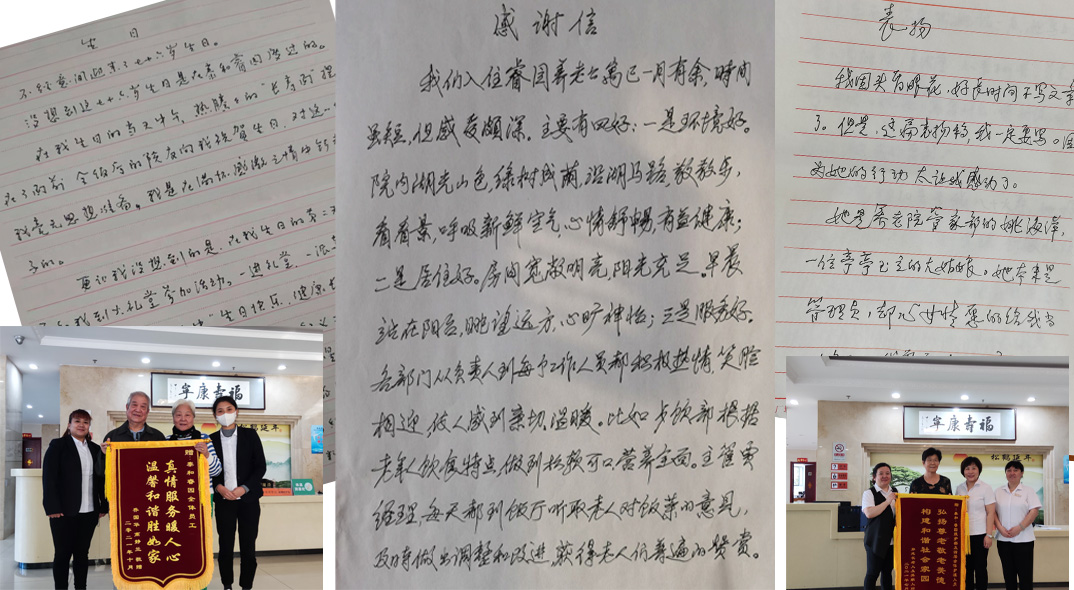 生日
不经意间迎来了七十六岁生日。
没想到这七十六岁生日是在泰和睿园度过的。
在我生日的当天中午，热腾腾的“长寿面”
我毫无思想准备。我是在满怀感激之情
更让我没想到的是，在我生日的第二
到大礼堂参加活动。一进礼堂，一
生日快乐、健康
感谢信
我们入住睿园养老公寓已一月有余，时间
虽短，但感受颇深。主要有四好：一是环境好。
院内湖光山色，绿树成荫，沿湖马路，散散步，
看看景，呼吸新鲜空气，心情舒畅，有益健康；
二是居住好。房间宽敞明亮，阳光充足，早晨
站在阳台，眺望远方，心旷神怡；三是服务好。
各部门从负责人到每个工作人员都积极热情，笑脸
相迎，使人感到亲切，温暖。比如：餐饮部根据
老年人饮食特点，做到松软可口营养全面。主管贾
经理，每天都到饭厅听取老人对饭菜的意见，
及时做出调整和改进，获得老人们普遍的赞赏。
表扬
我因头昏眼花，好长时间不写文章
了。但是，这篇表扬稿，我一定要写。因
为她的行动太让我感动了。
她是养老院管家部的姚海萍，
一位亭亭玉立的大姑娘。她本来是
管理员，却心甘情愿的给我当
福寿康宁
赠 泰和睿园全体员工
真情服务暖人心
温馨和谐胜如家
二零二一年十月
福寿康宁
松鹤延年
弘扬尊老敬老美德
构建和谐社会家园